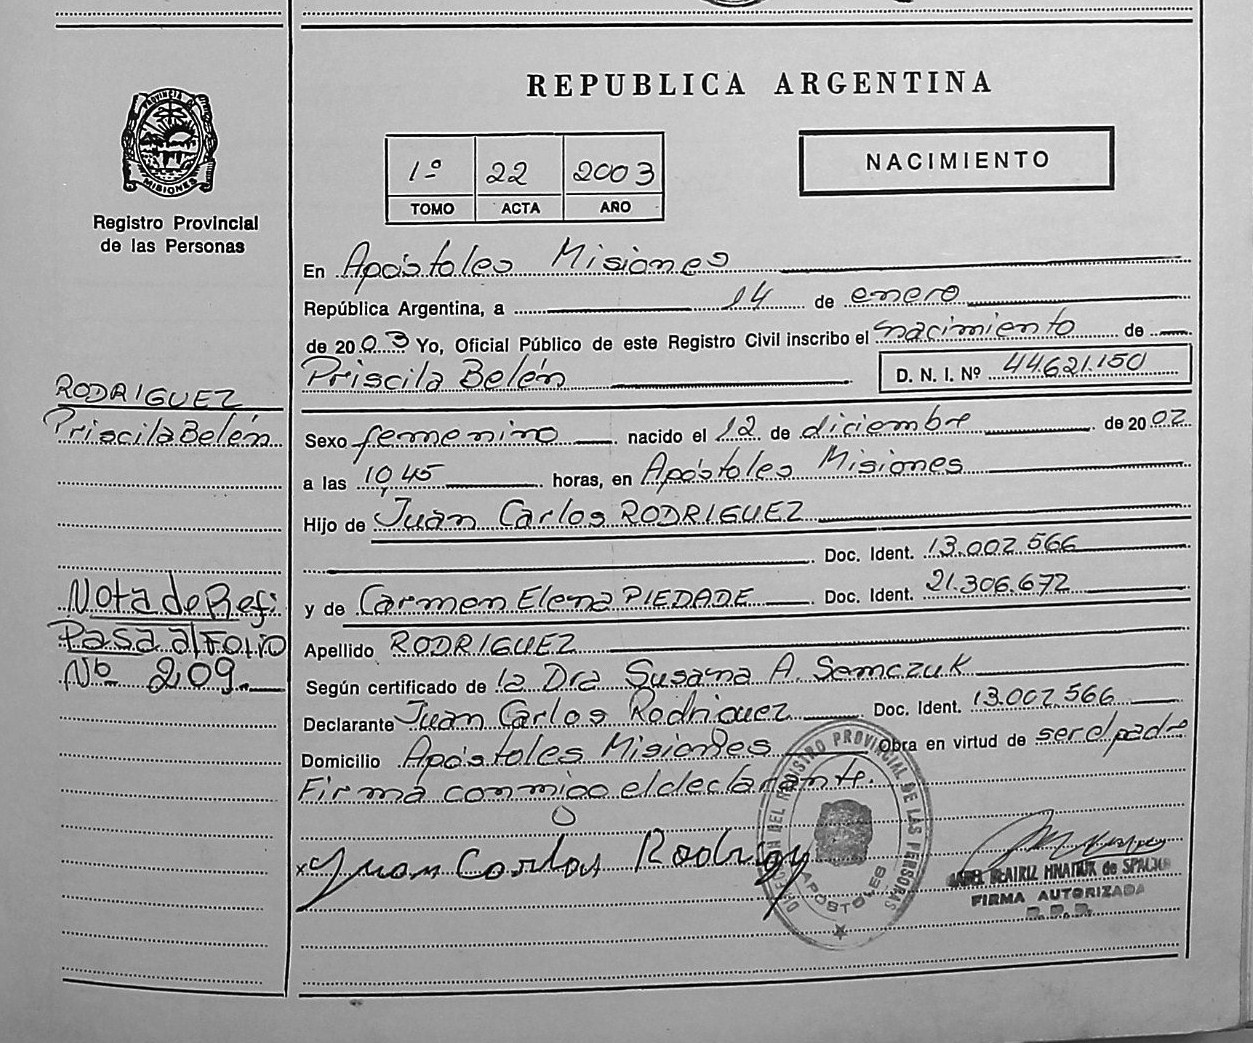 REPUBLICA ARGENTINA
PROVINCIA DE
MISIONES
Registro Provincial
de las Personas
1º 22 2003
TOMO ACTA AÑO
NACIMIENTO
En Apóstoles Misiones
República Argentina, a 14 de enero
de 2003 Yo, Oficial Público de este Registro Civil inscribo el nacimiento de
Priscila Belén D. N. I. Nº 44.621.150
RODRIGUEZ
Priscila Belén
Sexo femenino nacido el 12 de diciembre de 2002
a las 10,45 horas, en Apóstoles Misiones
Hijo de Juan Carlos RODRIGUEZ
Doc. Ident. 13.002.566
y de Carmen Elena PIEDADE Doc. Ident. 21.306.672
Nota de Refi
Pasa al Folio
Nº 209.
Apellido RODRIGUEZ
Según certificado de la Dra Susana A Semczuk
Declarante Juan Carlos Rodriguez Doc. Ident. 13.002.566
Domicilio Apóstoles Misiones Obra en virtud de ser el padre
Firma conmigo el declarante.
x Juan Carlos Rodrigu
DEL REGISTRO PROVINCIAL DE LAS PERSONAS
APOSTOLES
BEATRIZ HNATIUK de
FIRMA AUTORIZADA